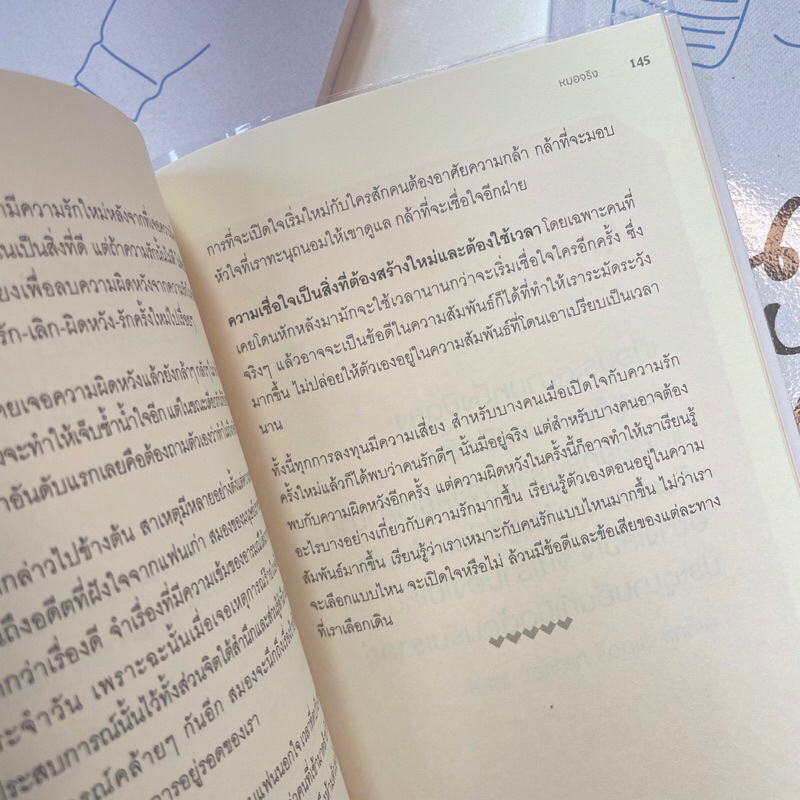 ามีความรักใหม่หลังจากที่เจอความ
นเป็นสิ่งที่ดี แต่ถ้าความรักนั้นไม่ได้
ยงเพื่อลบความผิดหวังจากความรัก
รัก-เลิก-ผิดหวัง-รักครั้งใหม่ไปเรื่อยๆ
ายเจอความผิดหวังแล้วยังกล้าๆ กลัวๆ
งจะทำให้เจ็บซ้ำน้ำใจอีก แต่ในขณะเดียวกัน
าอันดับแรกเลยคือต้องถามตัวเองว่าทำไม
กกล่าวไปข้างต้น สาเหตุมีหลายอย่างตั้งแต่
นถึงอดีตที่ฝังใจจากแฟนเก่า สมองของมนุษย์
ากกว่าเรื่องดี จำเรื่องที่มีความเข้มของอารมณ์
ระจำวัน เพราะฉะนั้นเมื่อเจอเหตุการณ์
ประสบการณ์นั้นไว้ทั้งส่วนจิตใต้สำนึกและส่วน
รณ์คล้ายๆ กันอีก สมองจะนึกถึงเรื่อง
การอยู่รอดของเรา
แฟนนอกใจ
หมอจริง 145
การที่จะเปิดใจเริ่มใหม่กับใครสักคนต้องอาศัยความกล้า กล้าที่จะมอบ
หัวใจที่เราทะนุถนอมให้เขาดูแล กล้าที่จะเชื่อใจอีกฝ่าย
ความเชื่อใจเป็นสิ่งที่ต้องสร้างใหม่และต้องใช้เวลา โดยเฉพาะคนที่
เคยโดนหักหลังมามักจะใช้เวลานานกว่าจะเริ่มเชื่อใจใครอีกครั้ง ซึ่ง
จริงๆ แล้วอาจจะเป็นข้อดีในความสัมพันธ์ก็ได้ที่ทำให้เราระมัดระวัง
มากขึ้น ไม่ปล่อยให้ตัวเองอยู่ในความสัมพันธ์ที่โดนเอาเปรียบเป็นเวลา
นาน
ทั้งนี้ทุกการลงทุนมีความเสี่ยง สำหรับบางคนเมื่อเปิดใจกับความรัก
ครั้งใหม่แล้วก็ได้พบว่าคนรักดีๆ นั้นมีอยู่จริง แต่สำหรับบางคนอาจต้อง
พบกับความผิดหวังอีกครั้ง แต่ความผิดหวังในครั้งนี้ก็อาจทำให้เราเรียนรู้
อะไรบางอย่างเกี่ยวกับความรักมากขึ้น เรียนรู้ตัวเองตอนอยู่ในความ
สัมพันธ์มากขึ้น เรียนรู้ว่าเราเหมาะกับคนรักแบบไหนมากขึ้น ไม่ว่าเรา
จะเลือกแบบไหน จะเปิดใจหรือไม่ ล้วนมีข้อดีและข้อเสียของแต่ละทาง
ที่เราเลือกเดิน